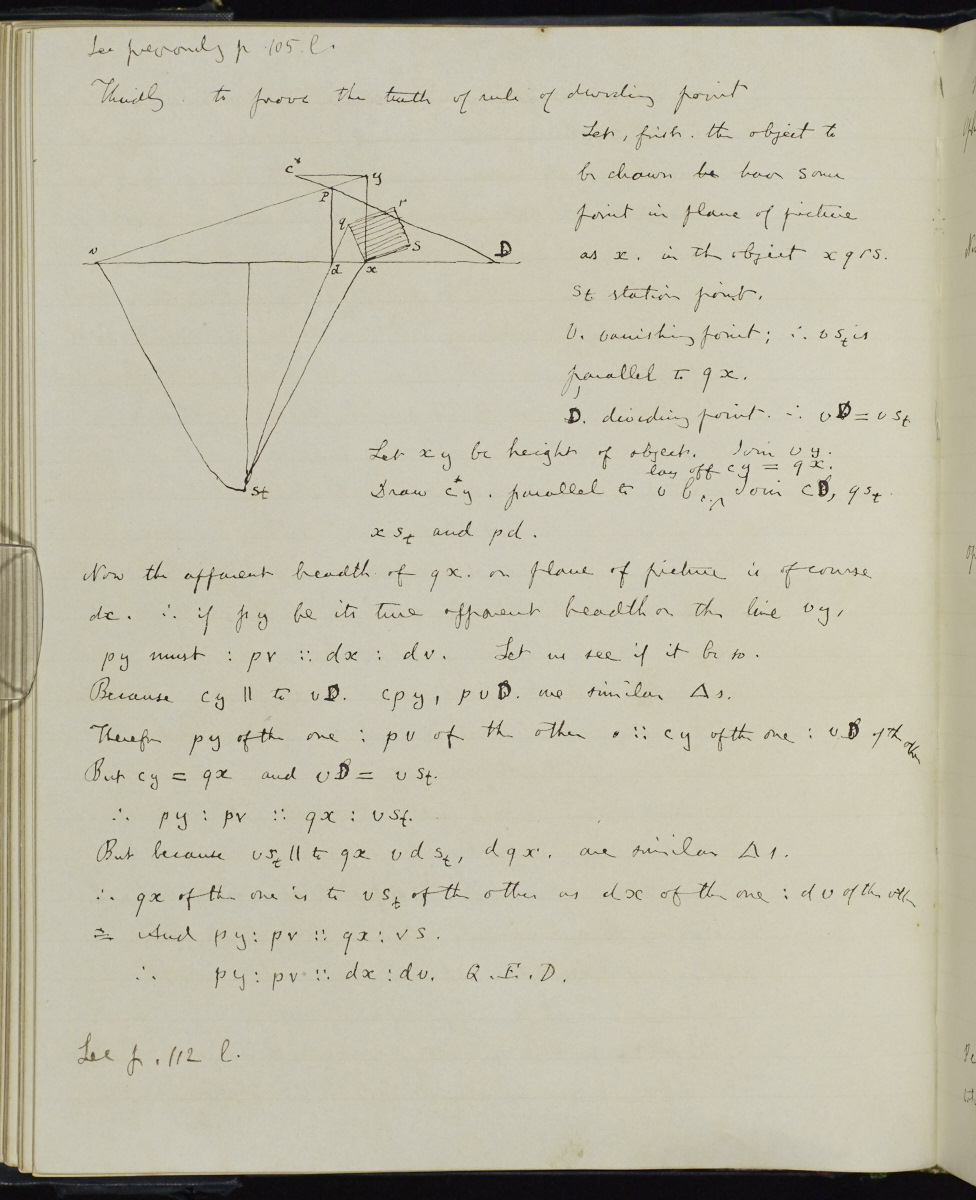 See previously p. 105. l.
Thirdly. to prove the truth of rule of dividing point
Let, first. the object to
be drawn be have some
point in plane of picture
as x. in the object x q r s.
St station point.
V. vanishing point; ∴ v St is
parallel to q x.
D. dividing point. ∴ v D = v St
c* y
p r
q
s
v d x D
St
Let x y be height of object. Join v y.
lay off cy = q x.
Draw c*y. parallel to v D. Join c D, q St.
x St and p d.
Now the apparent breadth of q x. on plane of picture is of course
dx. ∴ if p y be its true apparent breadth on the line v y,
p y must : p v :: d x : d v. Let us see if it be so.
Because c y || to v D. c p y, p v D. are similar Δ s.
Therefore p y of the one : p v of the other :: c y of the one : v D of the other
But c y = q x and v D = v St.
∴ p y : p v :: q x : v St.
But because v St || to q x v d St, d q x. are similar Δ s.
∴ q x of the one is to v St of the other as d x of the one : d v of the other
= And p y : p v :: q x : v s.
∴ p y : p v :: d x : d v. Q. E. D.
See p. 112 l.